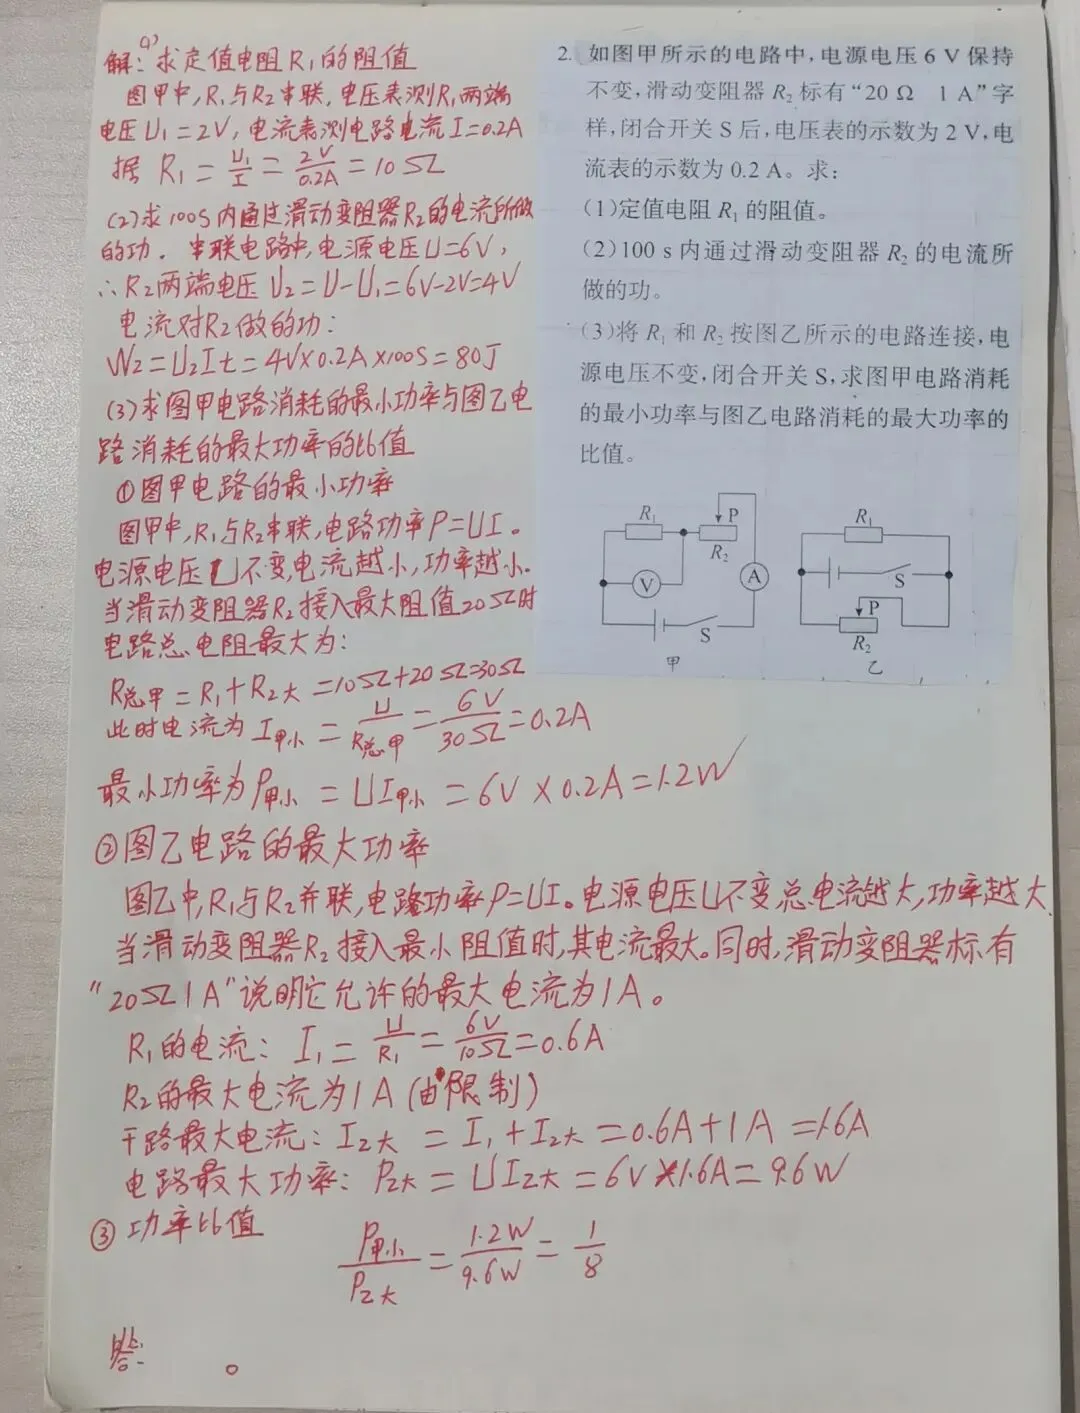 2. 如图甲所示的电路中,电源电压 6 V 保持
不变,滑动变阻器 R₂ 标有“20 Ω 1 A”字
样,闭合开关 S 后,电压表的示数为 2 V,电
流表的示数为 0.2 A。求:
(1)定值电阻 R₁ 的阻值。
(2)100 s 内通过滑动变阻器 R₂ 的电流所
做的功。
(3)将 R₁ 和 R₂ 按图乙所示的电路连接,电
源电压不变,闭合开关 S,求图甲电路消耗
的最小功率与图乙电路消耗的最大功率的
比值。
R₁ P
R₂
V A
S
甲
R₁
S
P
R₂
乙
解: (1) 求定值电阻R₁的阻值
图甲中,R₁与R₂串联,电压表测R₁两端
电压U₁=2V,电流表测电路电流I=0.2A
据 R₁=U₁/I=2V/0.2A=10Ω
(2)求100S内通过滑动变阻器R₂的电流所做
的功。串联电路中,电源电压U=6V,
∴R₂两端电压 U₂=U-U₁=6V-2V=4V
电流对R₂做的功:
W₂=U₂It=4V×0.2A×100S=80J
(3)求图甲电路消耗的最小功率与图乙电
路消耗的最大功率的比值
①图甲电路的最小功率
图甲中,R₁与R₂串联,电路功率P=UI。
电源电压U不变,电流越小,功率越小.
当滑动变阻器R₂接入最大阻值20Ω时
电路总电阻最大为:
R总甲=R₁+R₂大=10Ω+20Ω=30Ω
此时电流为 I甲小=U/R总甲=6V/30Ω=0.2A
最小功率为P甲小=UI甲小=6V×0.2A=1.2W
②图乙电路的最大功率
图乙中,R₁与R₂并联,电路功率P=UI。电源电压U不变,总电流越大,功率越大
当滑动变阻器R₂接入最小阻值时,其电流最大。同时,滑动变阻器标有
“20Ω1A”说明它允许的最大电流为1A。
R₁的电流: I₁=U/R₁=6V/10Ω=0.6A
R₂的最大电流为1A(由限制)
干路最大电流:I乙大=I₁+I₂大=0.6A+1A=1.6A
电路最大功率:P乙大=UI乙大=6V×1.6A=9.6W
③功率比值
P甲小/P乙大=1.2W/9.6W=1/8
答: 。